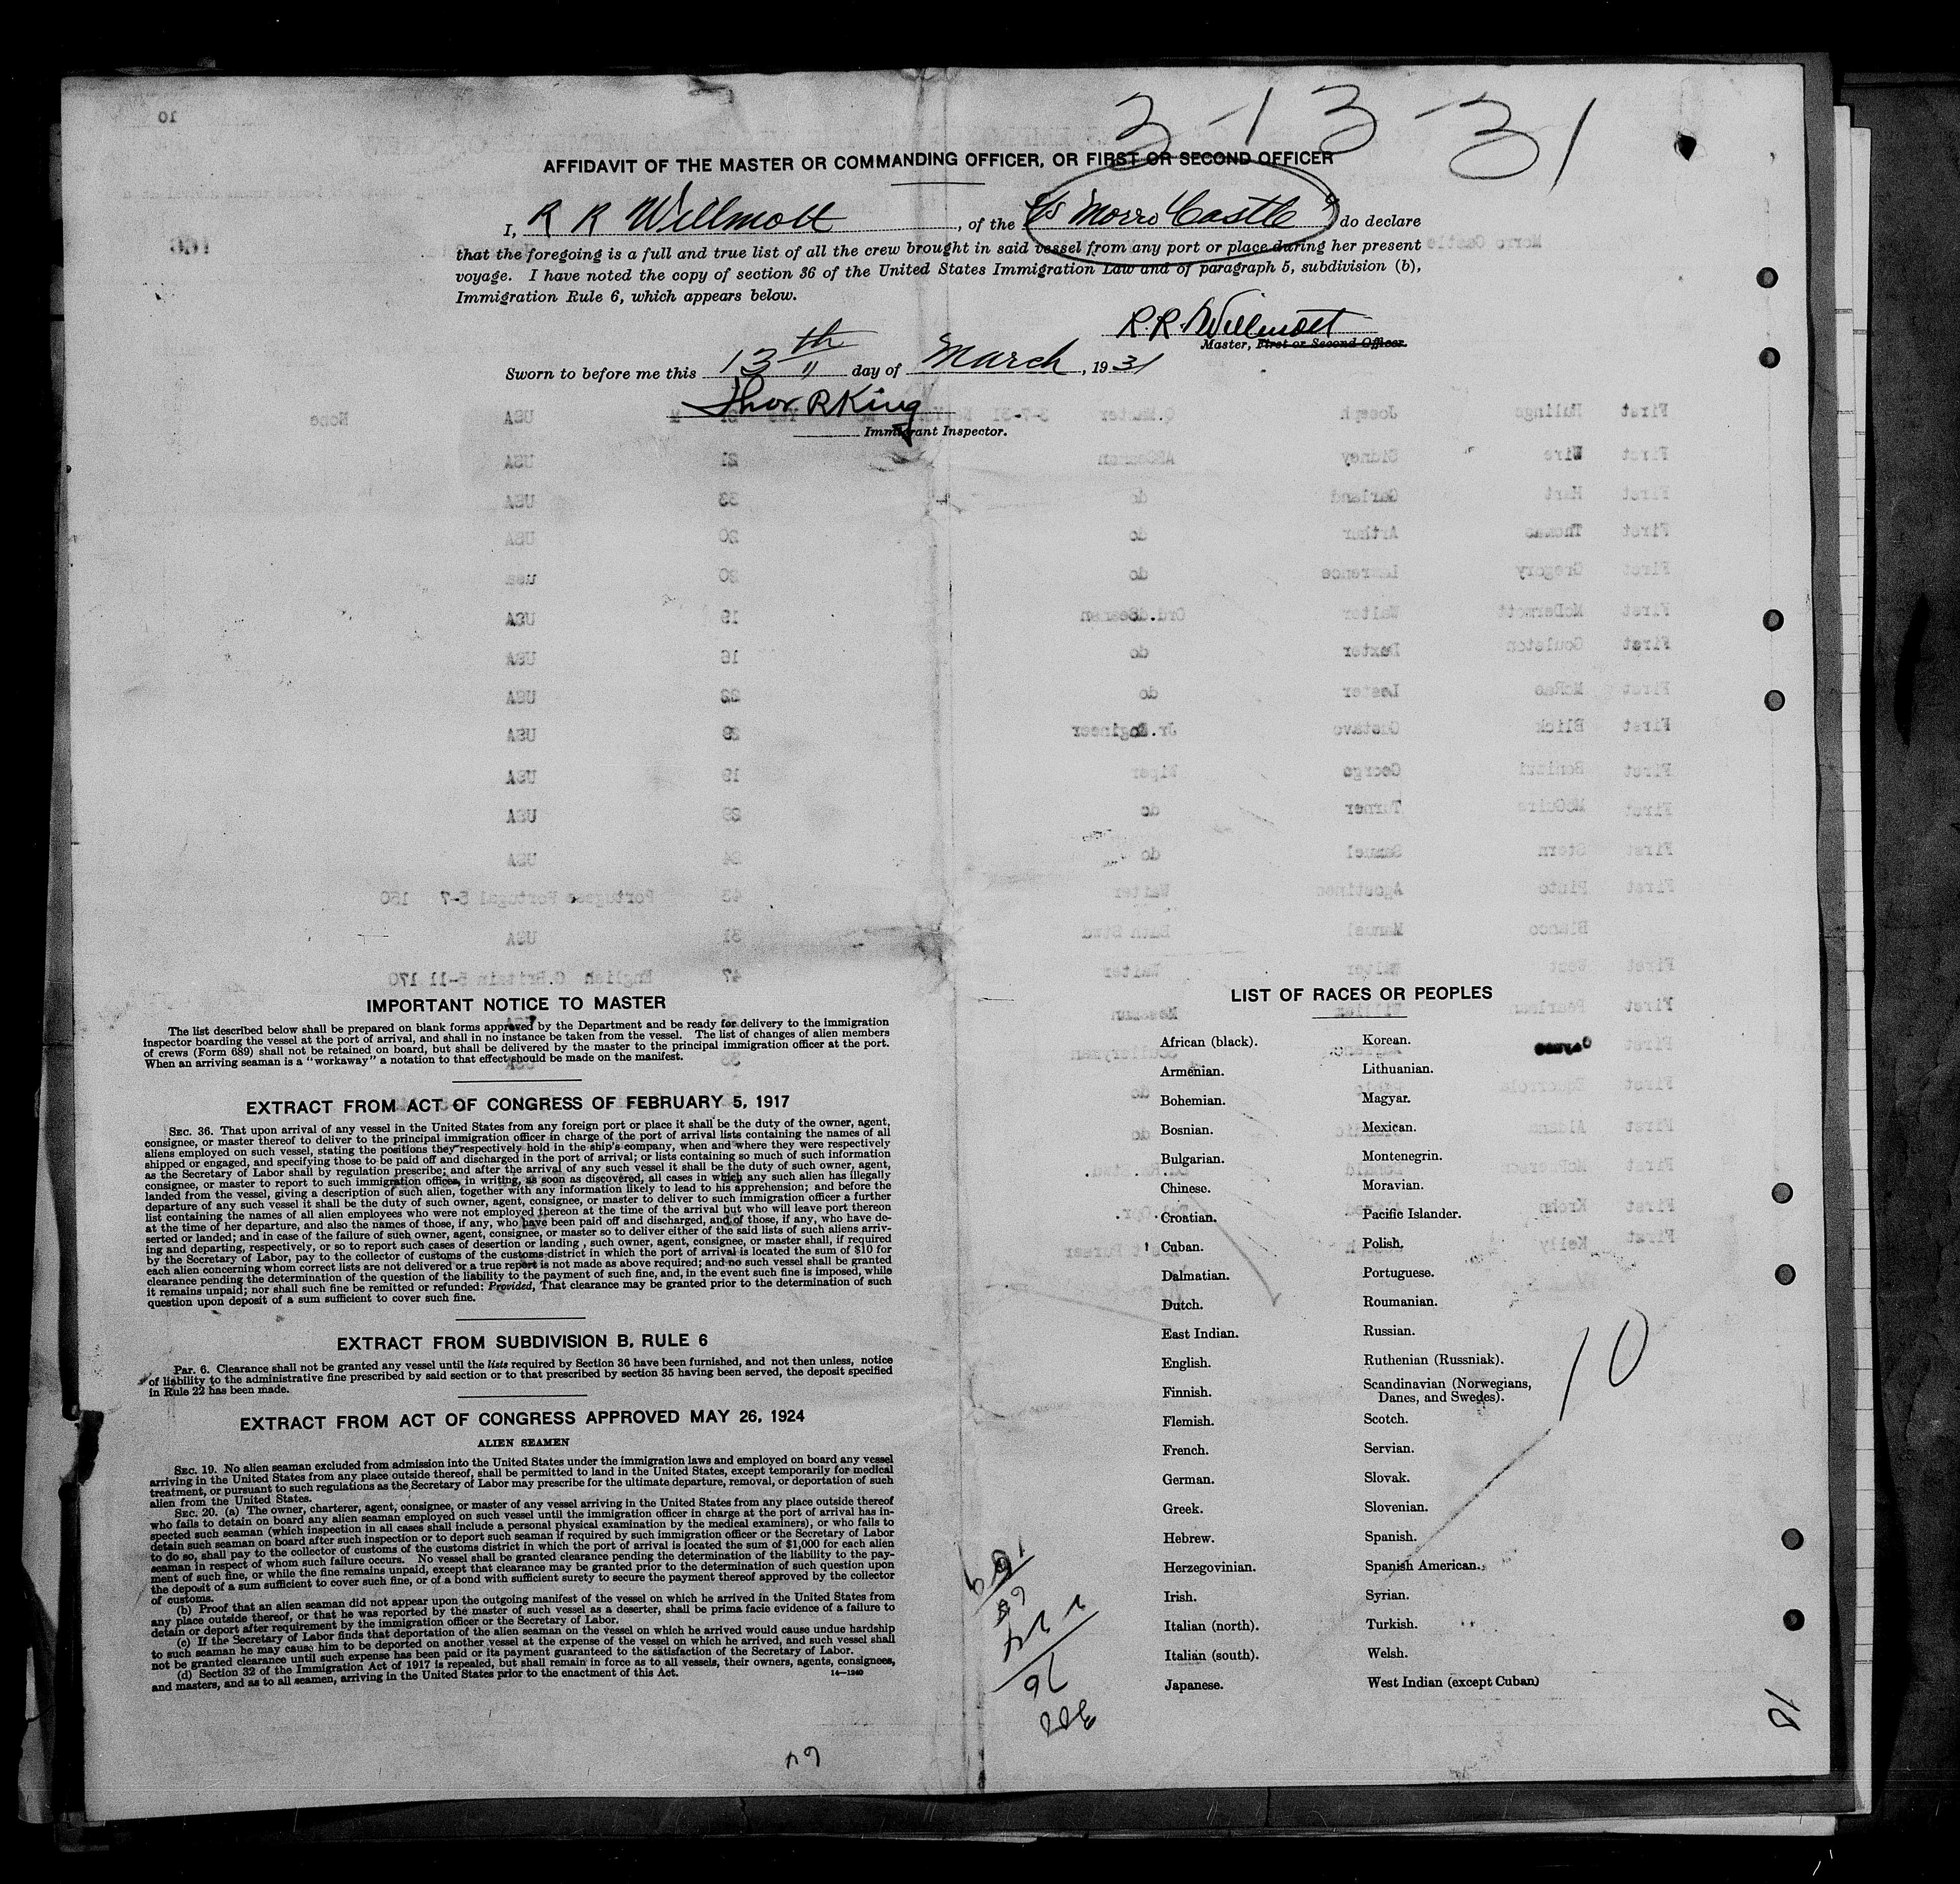 3-13-31
AFFIDAVIT OF THE MASTER OR COMMANDING OFFICER, OR FIRST OR SECOND OFFICER
I, R R Willmott, of the SS Morro Castle do declare
that the foregoing is a full and true list of all the crew brought in said vessel from any port or place during her present
voyage. I have noted the copy of section 36 of the United States Immigration Law and of paragraph 5, subdivision (b),
Immigration Rule 6, which appears below.
R.R. Willmott
Master, First or Second Officer.
Sworn to before me this 13th day of March, 1931
Thos. R King
Immigrant Inspector.
IMPORTANT NOTICE TO MASTER
The list described below shall be prepared on blank forms approved by the Department and be ready for delivery to the immigration
inspector boarding the vessel at the port of arrival, and shall in no instance be taken from the vessel. The list of changes of alien members
of crews (Form 689) shall not be retained on board, but shall be delivered by the master to the principal immigration officer at the port.
When an arriving seaman is a "workaway" a notation to that effect should be made on the manifest.
EXTRACT FROM ACT OF CONGRESS OF FEBRUARY 5, 1917
SEC. 36. That upon arrival of any vessel in the United States from any foreign port or place it shall be the duty of the owner, agent,
consignee, or master thereof to deliver to the principal immigration officer in charge of the port of arrival lists containing the names of all
aliens employed on such vessel, stating the positions they respectively hold in the ship's company, when and where they were respectively
shipped or engaged, and specifying those to be paid off and discharged in the port of arrival; or lists containing so much of such information
as the Secretary of Labor shall by regulation prescribe; and after the arrival of any such vessel it shall be the duty of such owner, agent,
consignee, or master to report to such immigration officer, in writing, as soon as discovered, all cases in which any such alien has illegally
landed from the vessel, giving a description of such alien, together with any information likely to lead to his apprehension; and before the
departure of any such vessel it shall be the duty of such owner, agent, consignee, or master to deliver to such immigration officer a further
list containing the names of all alien employees who were not employed thereon at the time of the arrival but who will leave port thereon
at the time of her departure, and also the names of those, if any, who have been paid off and discharged, and of those, if any, who have de-
serted or landed; and in case of the failure of such owner, agent, consignee, or master so to deliver either of the said lists of such aliens arriv-
ing and departing, respectively, or so to report such cases of desertion or landing, such owner, agent, consignee, or master shall, if required
by the Secretary of Labor, pay to the collector of customs of the customs district in which the port of arrival is located the sum of $10 for
each alien concerning whom correct lists are not delivered or a true report is not made as above required; and no such vessel shall be granted
clearance pending the determination of the question of the liability to the payment of such fine, and, in the event such fine is imposed, while
it remains unpaid; nor shall such fine be remitted or refunded: Provided, That clearance may be granted prior to the determination of such
question upon deposit of a sum sufficient to cover such fine.
EXTRACT FROM SUBDIVISION B, RULE 6
Par. 6. Clearance shall not be granted any vessel until the lists required by Section 36 have been furnished, and not then unless, notice
of liability to the administrative fine prescribed by said section or to that prescribed by section 35 having been served, the deposit specified
in Rule 22 has been made.
EXTRACT FROM ACT OF CONGRESS APPROVED MAY 26, 1924
ALIEN SEAMEN
SEC. 19. No alien seaman excluded from admission into the United States under the immigration laws and employed on board any vessel
arriving in the United States from any place outside thereof, shall be permitted to land in the United States, except temporarily for medical
treatment, or pursuant to such regulations as the Secretary of Labor may prescribe for the ultimate departure, removal, or deportation of such
alien from the United States.
SEC. 20. (a) The owner, charterer, agent, consignee, or master of any vessel arriving in the United States from any place outside thereof
who fails to detain on board any alien seaman employed on such vessel until the immigration officer in charge at the port of arrival has in-
spected such seaman (which inspection in all cases shall include a personal physical examination by the medical examiners), or who fails to
detain such seaman on board after such inspection or to deport such seaman if required by such immigration officer or the Secretary of Labor
to do so, shall pay to the collector of customs of the customs district in which the port of arrival is located the sum of $1,000 for each alien
seaman in respect of whom such failure occurs. No vessel shall be granted clearance pending the determination of the liability to the pay-
ment of such fine, or while the fine remains unpaid, except that clearance may be granted prior to the determination of such question upon
the deposit of a sum sufficient to cover such fine, or of a bond with sufficient surety to secure the payment thereof approved by the collector
of customs.
(b) Proof that an alien seaman did not appear upon the outgoing manifest of the vessel on which he arrived in the United States from
any place outside thereof, or that he was reported by the master of such vessel as a deserter, shall be prima facie evidence of a failure to
detain or deport after requirement by the immigration officer or the Secretary of Labor.
(c) If the Secretary of Labor finds that deportation of the alien seaman on the vessel on which he arrived would cause undue hardship
to such seaman he may cause him to be deported on another vessel at the expense of the vessel on which he arrived, and such vessel shall
not be granted clearance until such expense has been paid or its payment guaranteed to the satisfaction of the Secretary of Labor.
(d) Section 32 of the Immigration Act of 1917 is repealed, but shall remain in force as to all vessels, their owners, agents, consignees,
and masters, and as to all seamen, arriving in the United States prior to the enactment of this Act.
14—1240
LIST OF RACES OR PEOPLES
African (black).
Armenian.
Bohemian.
Bosnian.
Bulgarian.
Chinese.
Croatian.
Cuban.
Dalmatian.
Dutch.
East Indian.
English.
Finnish.
Flemish.
French.
German.
Greek.
Hebrew.
Herzegovinian.
Irish.
Italian (north).
Italian (south).
Japanese.
Korean.
Lithuanian.
Magyar.
Mexican.
Montenegrin.
Moravian.
Pacific Islander.
Polish.
Portuguese.
Roumanian.
Russian.
Ruthenian (Russniak).
Scandinavian (Norwegians,
Danes, and Swedes).
Scotch.
Servian.
Slovak.
Slovenian.
Spanish.
Spanish American.
Syrian.
Turkish.
Welsh.
West Indian (except Cuban)
10
10